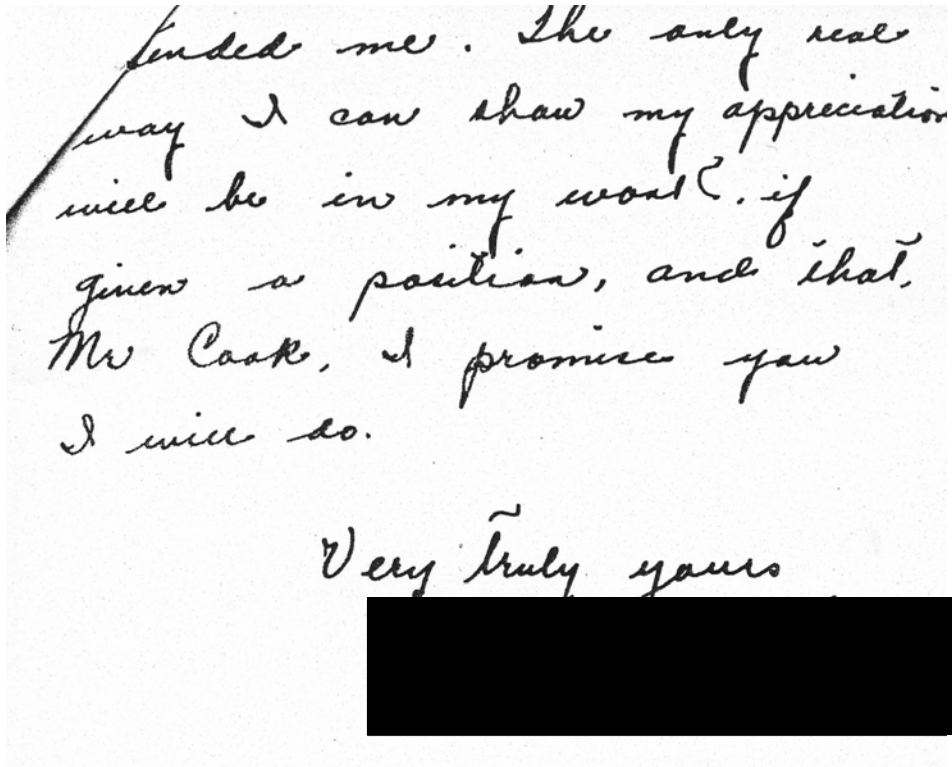 tended me. The only real
way I can show my appreciation
will be in my work, if
given a position, and that,
Mr Cook, I promise you
I will do.
Very truly yours